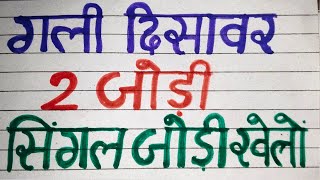 गली दिसावर
2 जोड़ी
सिंगल जोड़ी खेलों